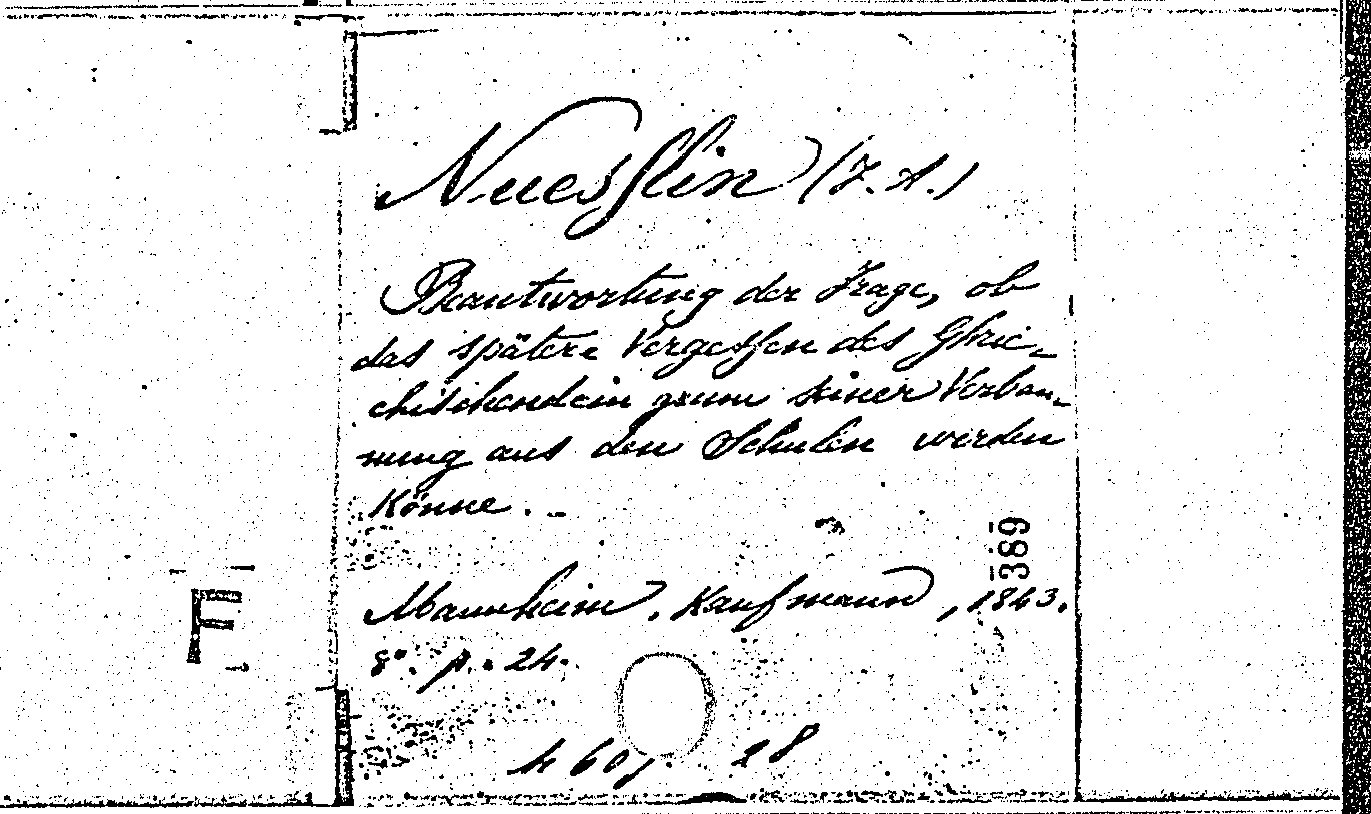 Nuesslin (F. A.)
Beantwortung der Frage, ob
das spätere Vergessen des Ghrie-
chischen ein grunn seiner Verban-
nung aus den Schulen werden
könne. -
389
Mannheim. Kaufmann, 1843.
8°. p. 24.
F
4 605. 28